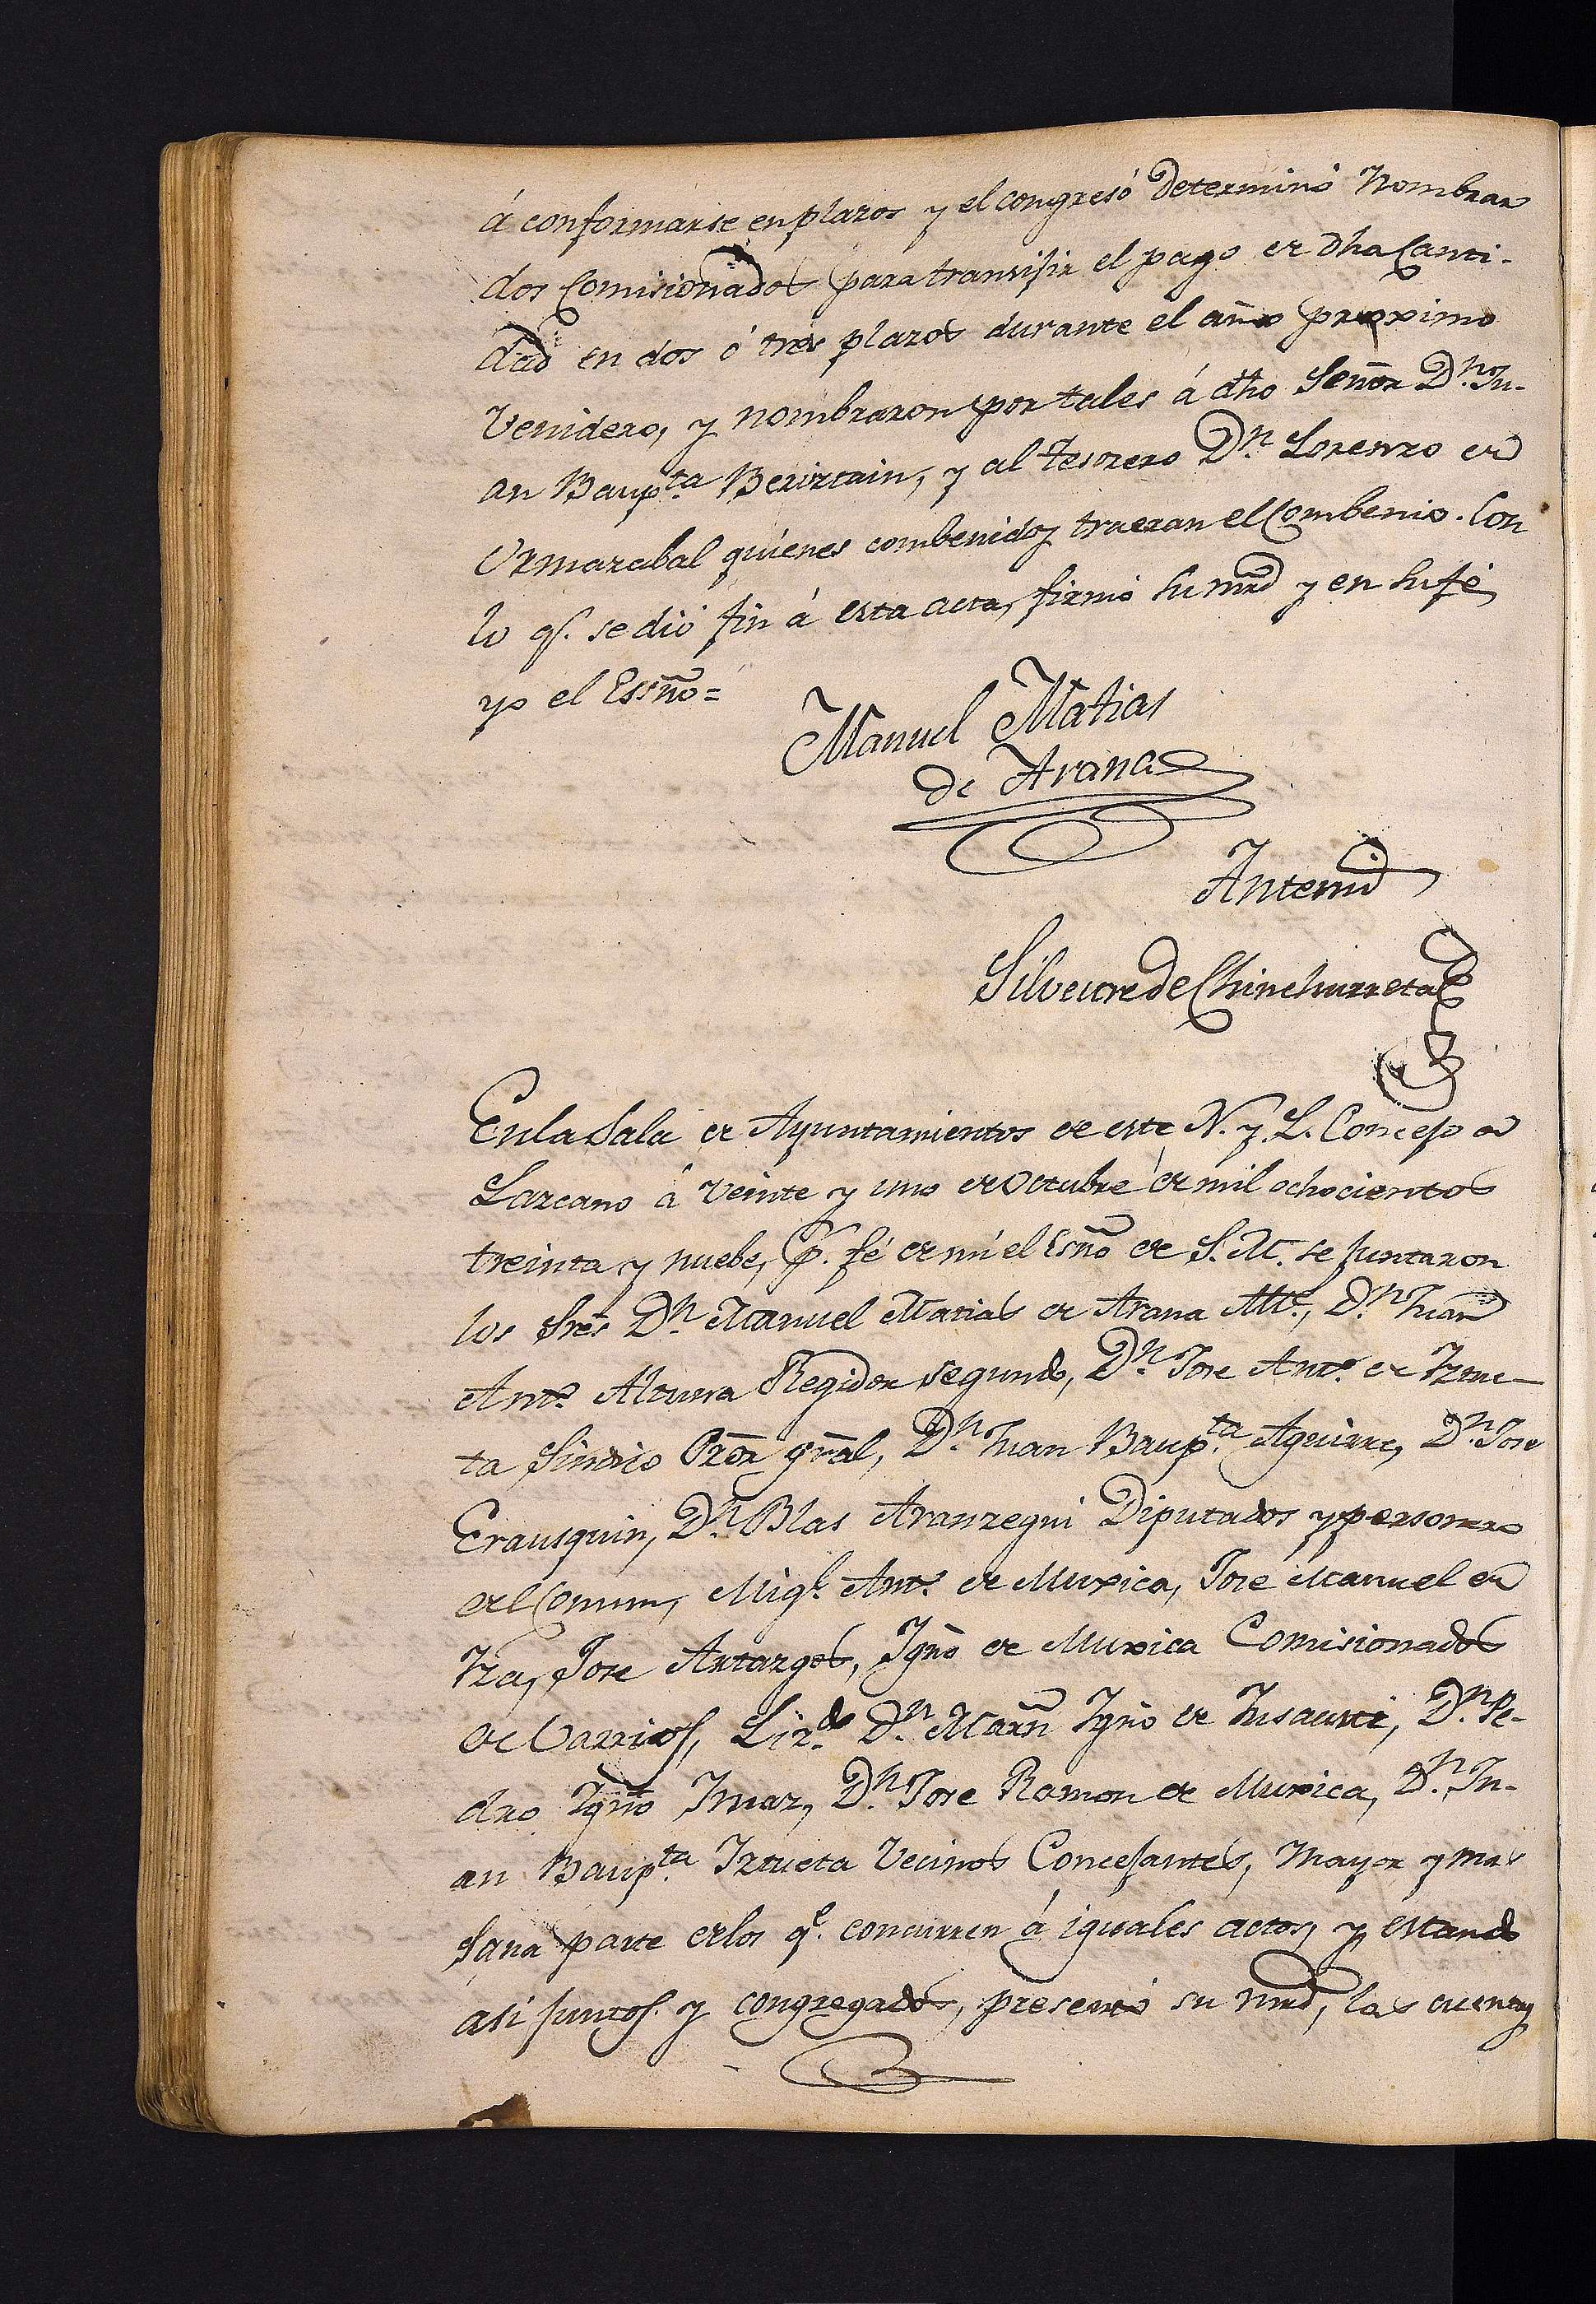 á conformarse en plazos y el congresó determinó nombrar
dos Comisionados para transijir el pago de dha Canti-
dad en dos ó tres plazos durante el año proximo
venidero, y nombraron por tales á dho Señor Dn. Ju-
an Baupta. Beriztain, y al tesorero Dn. Lorenzo de
Urmazabal quienes combenidos traeran el Combenio. Con
lo qe. se dió fin á esta acta, firmó su mrd y en su fé
yo el Essño=
Manuel Matias
de Arana
Antemi
Silvestre de Chinchurreta
En la Sala de Ayuntamientos de este N. y L. Concejo de
Lazcano á veinte y uno de Octubre de mil ochocientos
treinta y nuebe, pr. fé de mi el Esño de S. M. se juntaron
los Sres Dn. Manuel Matias de Arana Alle., Dn. Juan
Anto. Altuna Regidor segundo, Dn. Jose Anto. de Iztue-
ta Sindico Pror gral, Dn. Juan Baupta. Aguirre, Dn. Jose
Erausquin, Dn. Blas Aranzegui Diputados y personero
del Comun, Migl. Anto. de Muxica, José Manuel de
Iza, Jose Artazgos, Igno de Muxica Comisionados
de Varrios, Lizdo. Dn. Marn Igno de Insausti, Dn. Pe-
dro Igno Imaz, Dn. Jose Ramon de Muxica, Dn. Ju-
an Baupta. Iztueta vecinos Concejantes, mayor y mas
sana parte de los qe. concurren á iguales actos, y estando
asi juntos y congregados, presentó su mrd, las cuentas